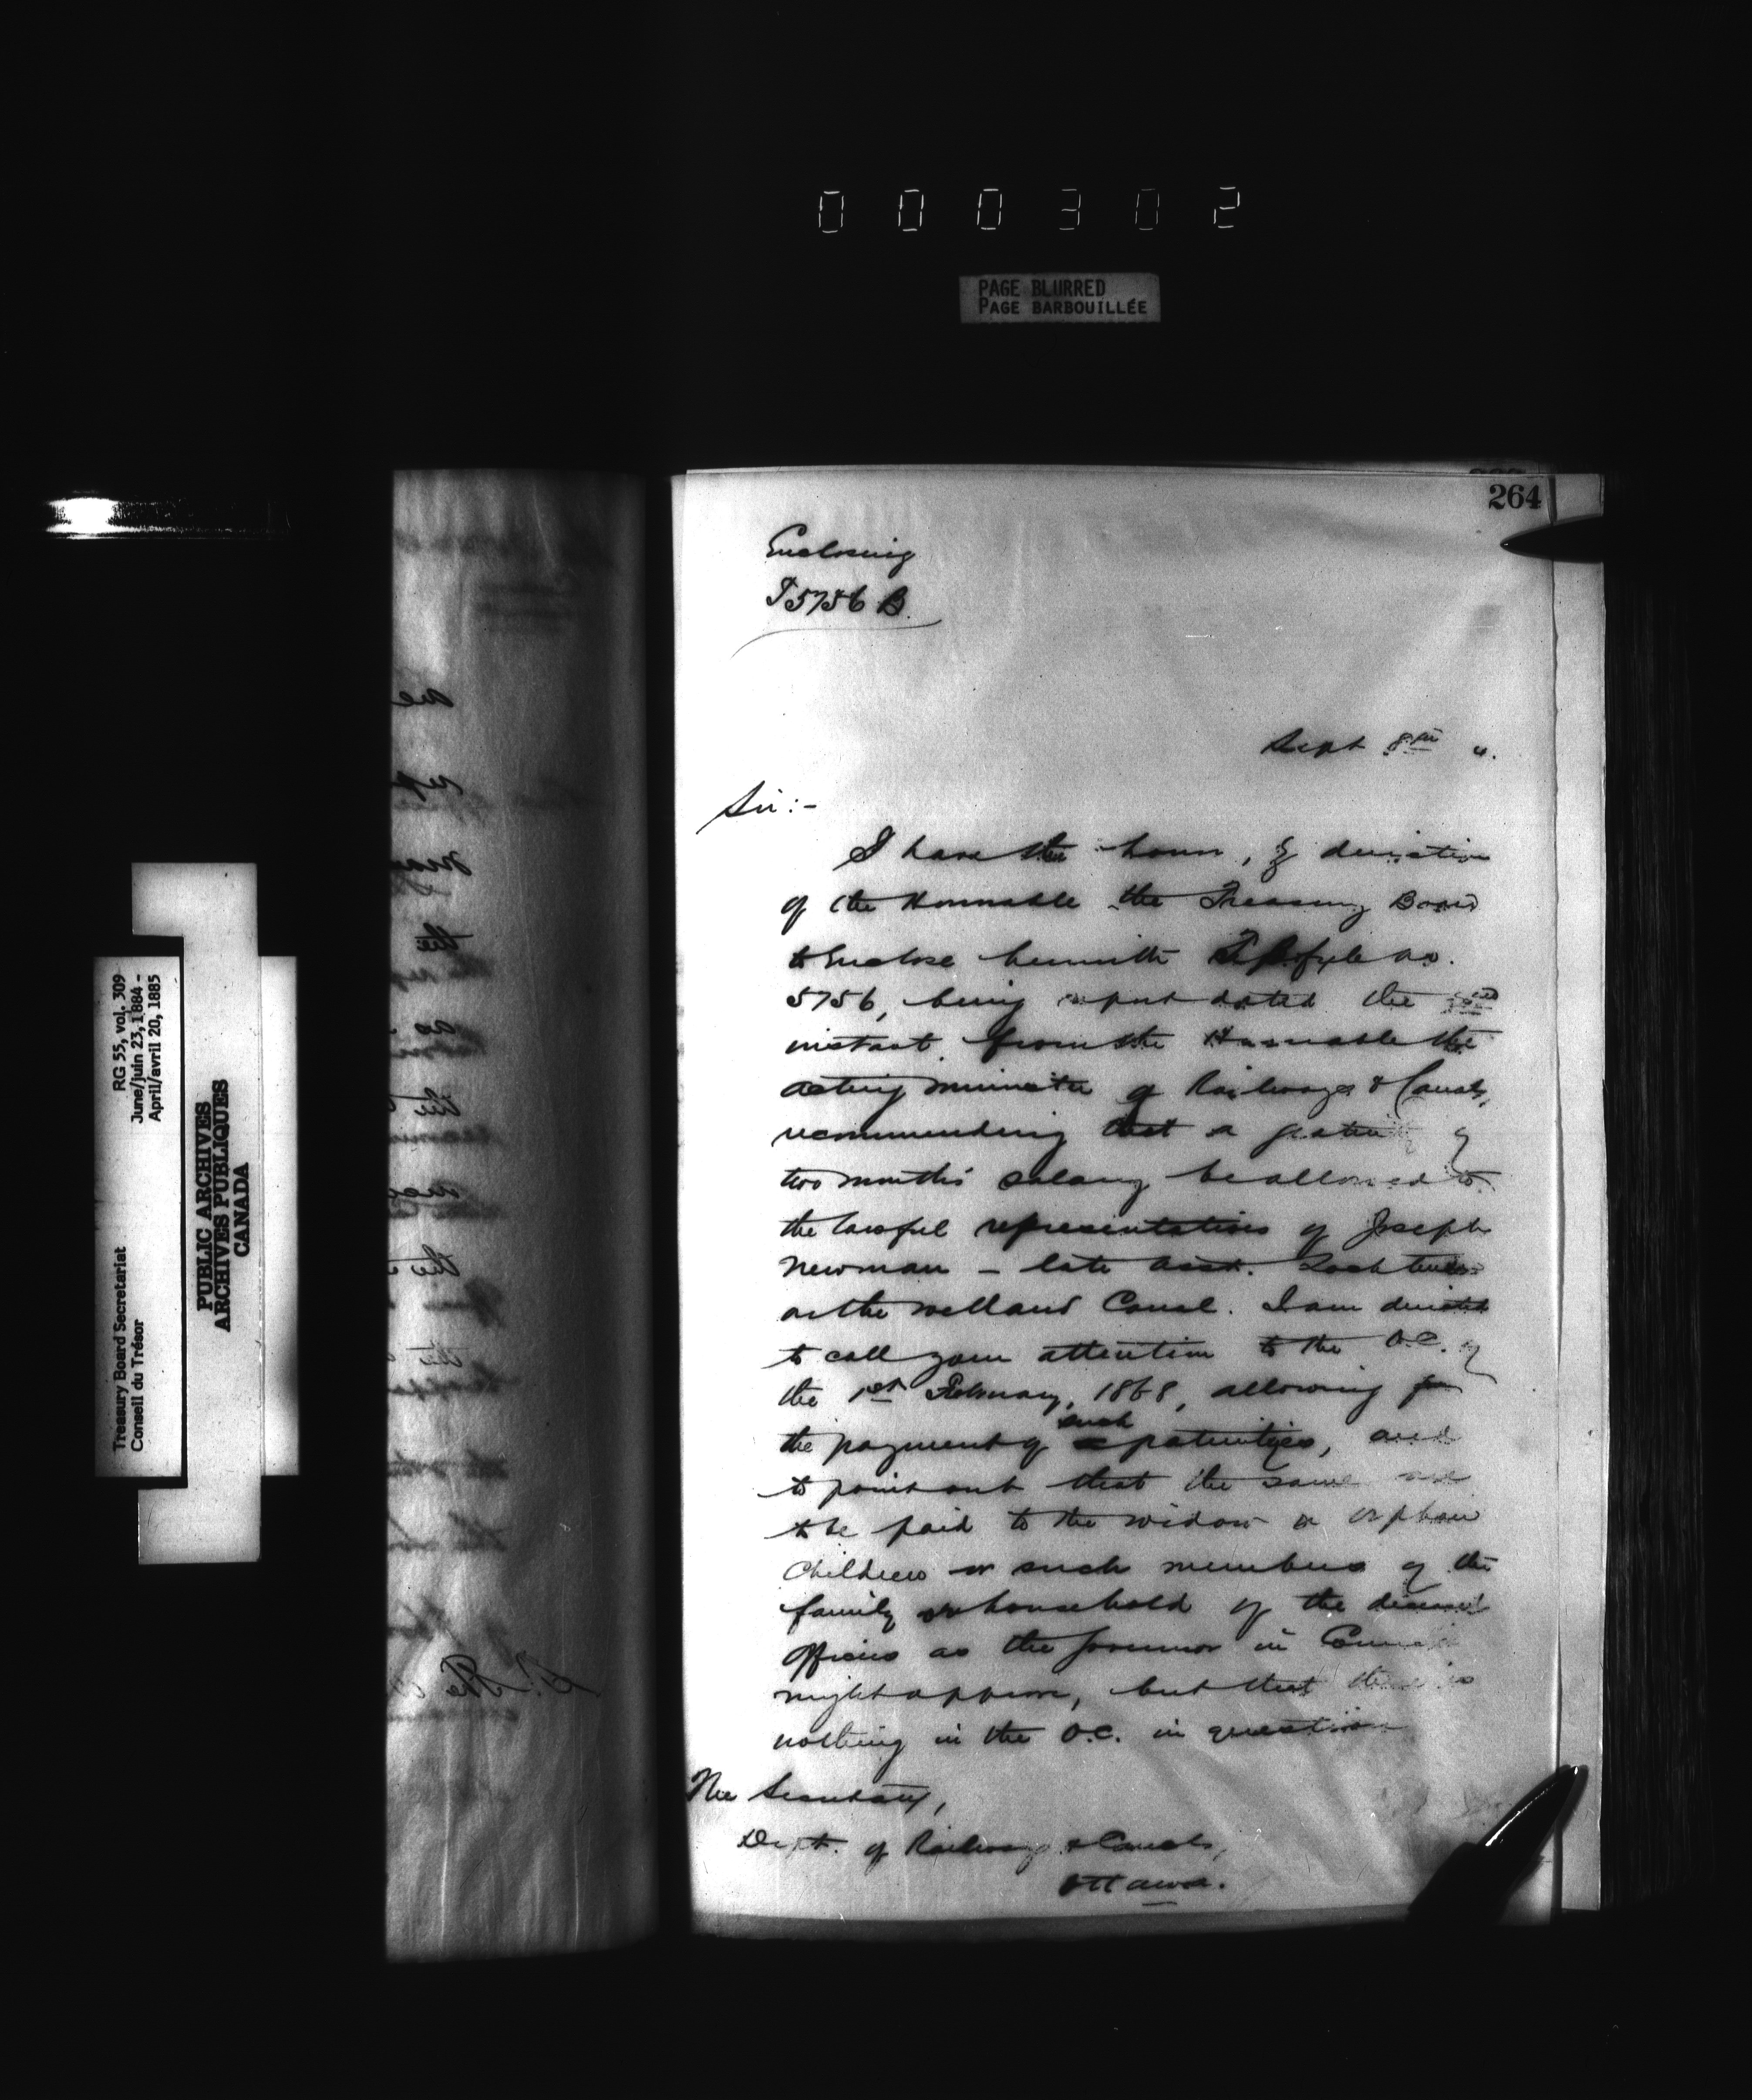 000302
PAGE BLURRED
PAGE BARBOUILLÉE
264
Enclosing
T5756 B.
Sept 8th 4.
Sir:-
I have the honor, by direction
of the Honorable the Treasury Board
to enclose herewith fyle no.
5756, being report dated the
instant from the Honorable the
acting minister of Railways & Canals,
recommending that a gratuity of
two months' salary be allowed to
the lawful representatives of Joseph
Newman – late Asst. Lock tender
on the Welland Canal. I am directed
to call your attention to the O.C. of
the 1st February, 1868, allowing for
the payment of such gratuities, and
to point out that the same
to be paid to the widow or orphan
children or such members of the
family or household of the deceased
officers as the Governor in Council
might approve, but that there is
nothing in the O.C. in question
The Secretary,
Dept. of Railways & Canals,
Ottawa.
RG 55, vol. 309
June/juin 23, 1884 -
April/avril 20, 1885
Treasury Board Secretariat
Conseil du Trésor
PUBLIC ARCHIVES
ARCHIVES PUBLIQUES
CANADA